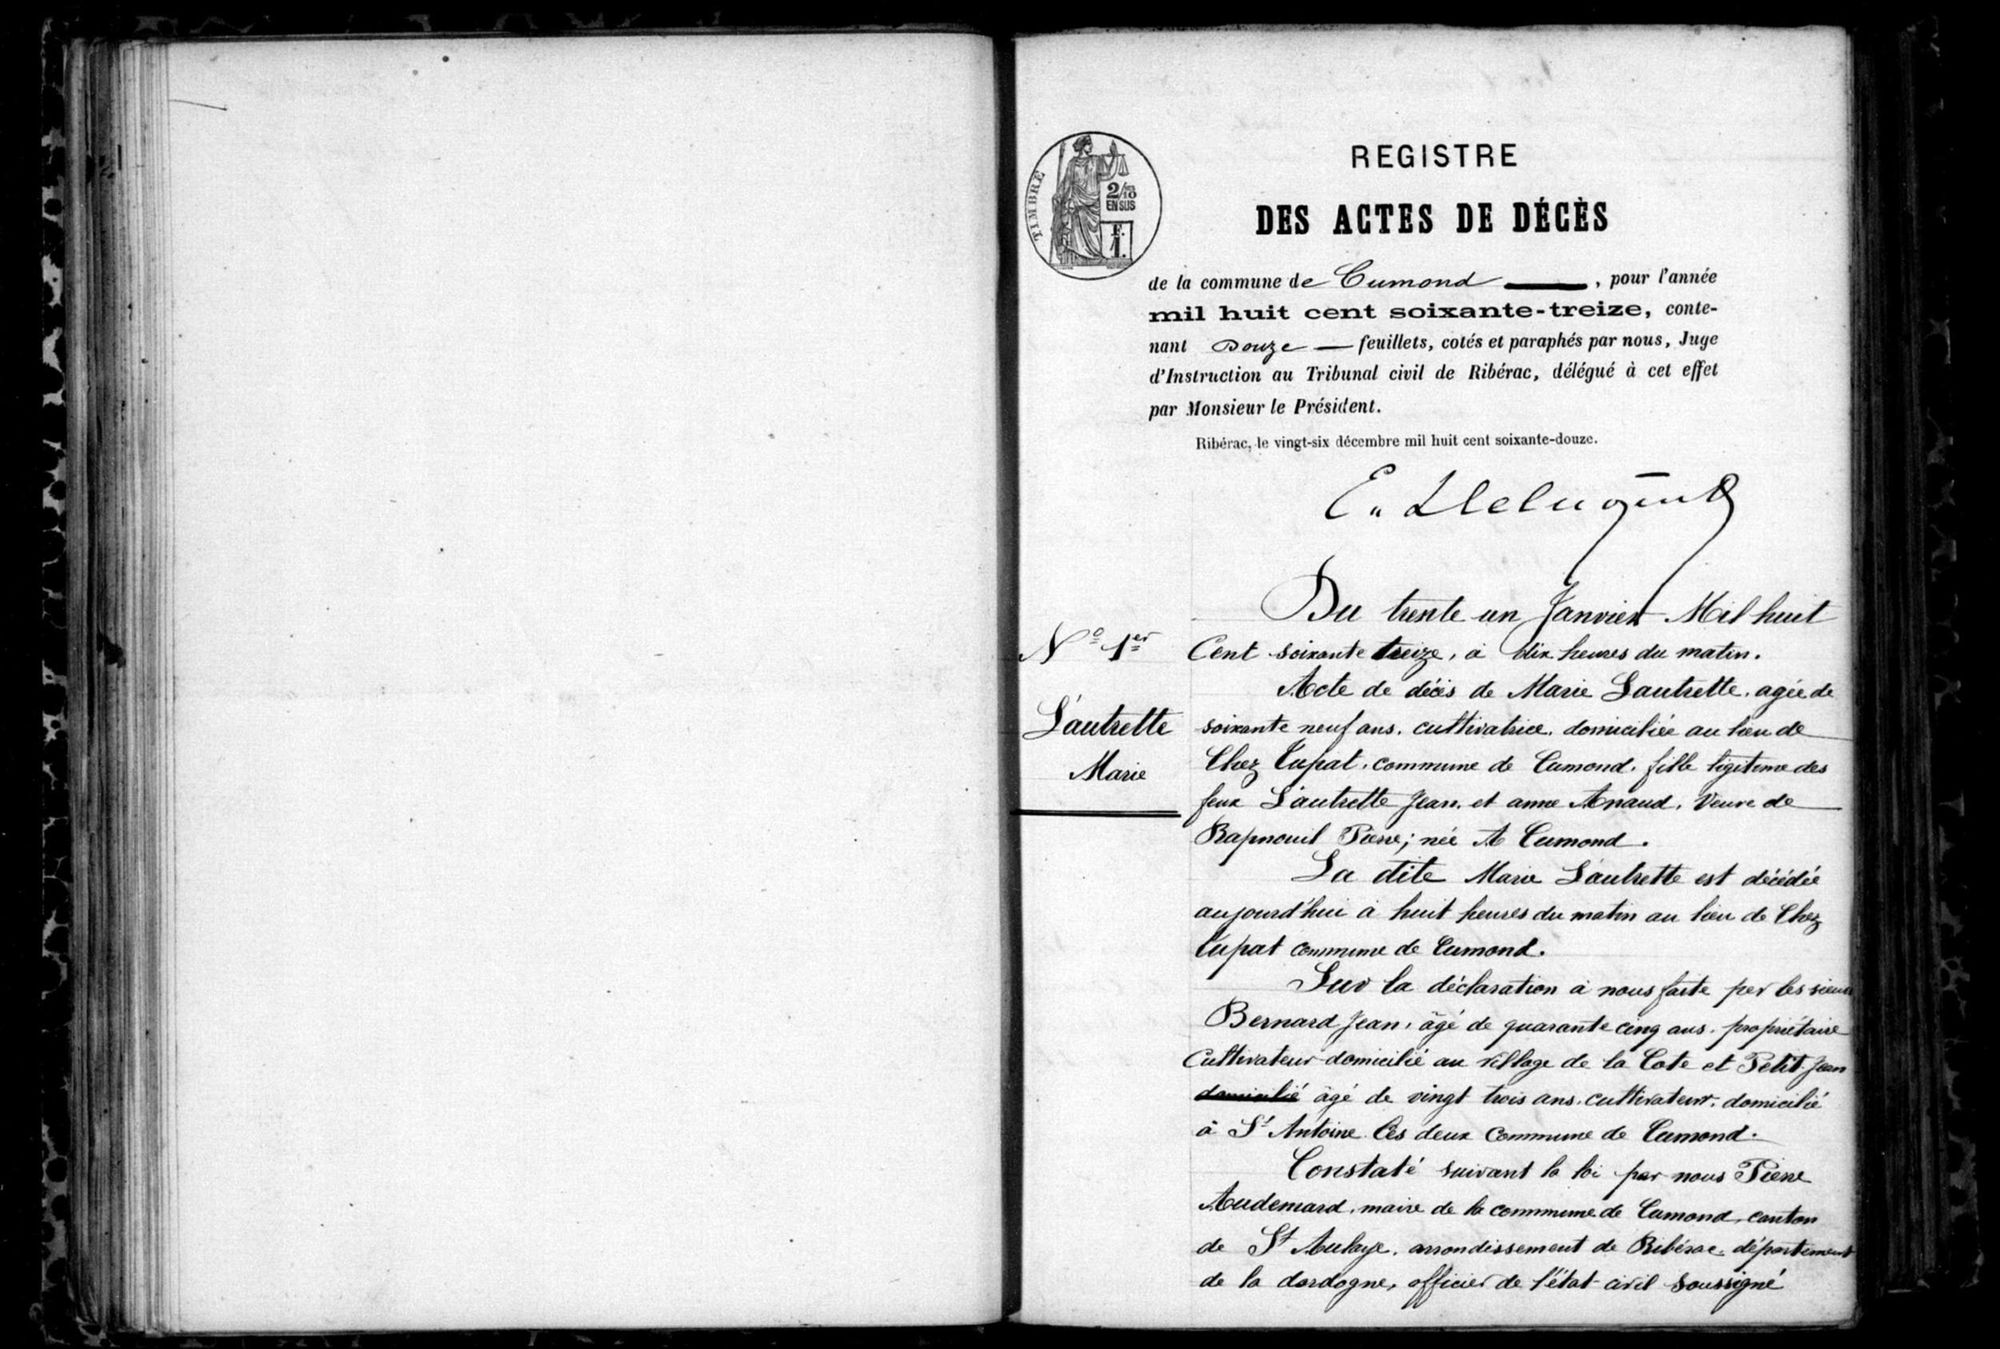 REGISTRE
DES ACTES DE DÉCÈS
TIMBRE
2/10
EN SUS
F.
1.
de la commune de Cumond , pour l'année
mil huit cent soixante-treize, conte-
nant Douze feuillets, cotés et paraphés par nous, Juge
d'Instruction au Tribunal civil de Ribérac, délégué à cet effet
par Monsieur le Président.
Ribérac, le vingt-six décembre mil huit cent soixante-douze.
Du trente un Janvier Mil huit
N° 1er
Cent soixante treize, à dix heures du matin.
Acte de décès de Marie Lautrette, agée de
Lautrette
soixante neuf ans, cultivatrice, domiciliée au lieu de
Marie
Chez Tupat, commune de Cumond, fille légitime des
feux Lautrette Jean, et anne Arnaud, Veuve de
Rapnouil Pierre; née A Cumond.
La dite Marie Lautrette est décédée
aujourd'hui à huit heures du matin au lieu de Chez
Tupat commune de Cumond.
Sur la déclaration à nous faite par les sieurs
Bernard Jean, âgé de quarante cinq ans, propriétaire
Cultivateur domicilié au village de la Cote et Petit Jean
domicilié âgé de vingt trois ans, cultivateur, domicilié
à St Antoine Ces deux Commune de Cumond.
Constaté suivant la loi par nous Pierre
Audemard, maire de la commune de Cumond, canton
de St Aulaye, arrondissement de Ribérac, département
de la dordogne, officier de l'état civil soussigné